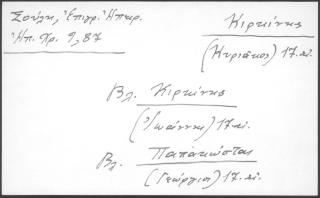 Σούλη, Ἐπιγρ. Ἠπειρ.
Ἠπ. Χρ. 9, 87
Κιρκίνης
(Κυριᾶκος) 17. αἰ.
Βλ. Κιρκίνης
(Ἰωάννης) 17. αἰ.
Βλ. Παπακώστας
(Γεώργιος) 17. αἰ.